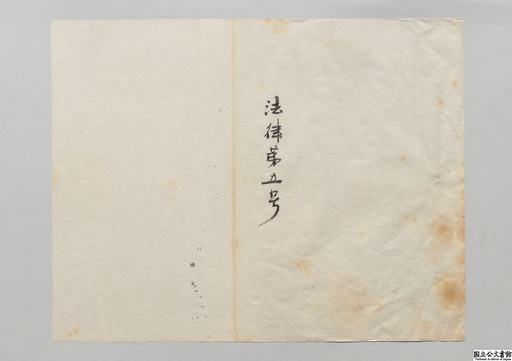 法律第五号
国立公文書館
National Archives of Japan